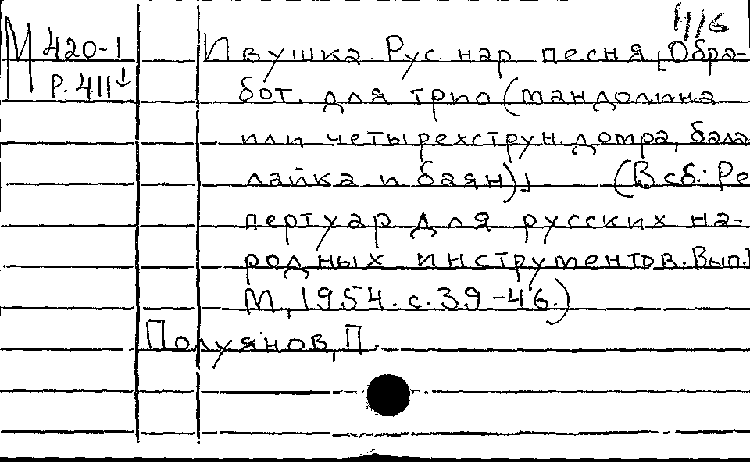 М 420-1
Р.411↓
11/6
Ивушка. Рус нар песня [Обра-
бот. для трио (мандолина
или четырехструн домра, бала
лайка и баян)] (В сб: Ре
пертуар для русских на-
родных инструментов. Вып.1
М, 1954. с. 39-46.)
Полуянов, П.